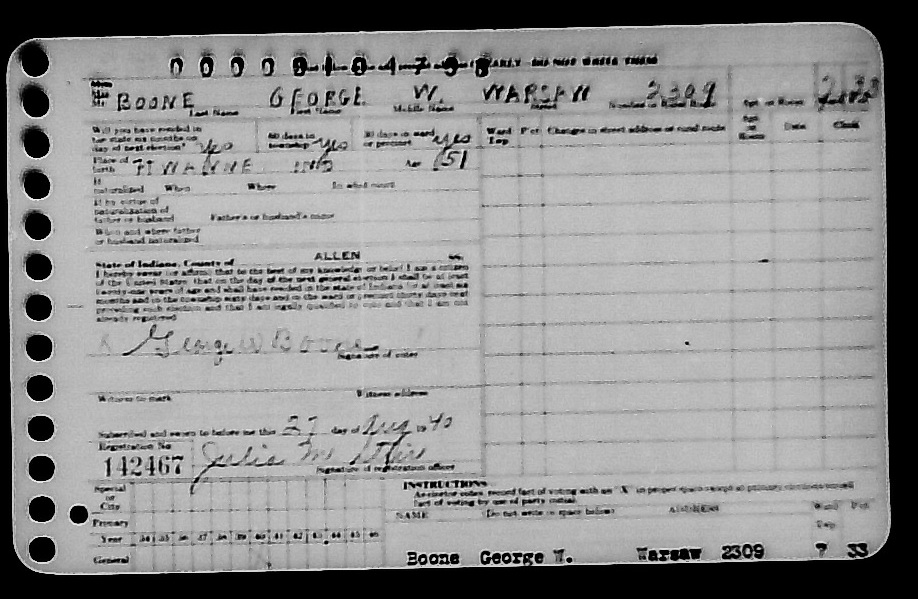 EARLY DO NOT WRITE THEM
Mrs Miss Mr. BOONE GEORGE W. WARSAW 2309
Last Name First Name Middle Name Street Number or Rural Route Apt. or Room
Will you have resided in the state six months on day of next election? Yes 60 days in township Yes 30 days in ward or precinct Yes
Ward Twp Pct Changes in street address or rural route Apt. or Room Date Clerk
Place of birth FT WAYNE IND Age 51
If naturalized When Where In what court
If by virtue of naturalization of father or husband Father's or husband's name
When and where father or husband naturalized
State of Indiana, County of ALLEN ss.
I hereby swear (or affirm) that to the best of my knowledge or belief I am a citizen
of the United States; that on the day of the next general election I shall be at least
twenty-one years of age and shall have resided in the state of Indiana for at least six
months and in the township sixty days and in the ward or precinct thirty days next
preceding such election and that I am legally qualified to vote and that I am not
already registered
X George W Boone
Signature of voter
Witness to mark Witness address
Subscribed and sworn to before me this 27 day of Aug 1940
Registration No
142467 Julia M
Signature of registration officer
Special or City
INSTRUCTIONS
As elector votes, record fact of voting with an "X" in proper space except at primary elections record
fact of voting by use of party initial.
Primary
NAME (Do not write in space below) ADDRESS Ward Twp Pct.
Year 34 35 36 37 38 39 40 41 42 43 44 45 46
General
Boone George W. Warsaw 2309 7 33